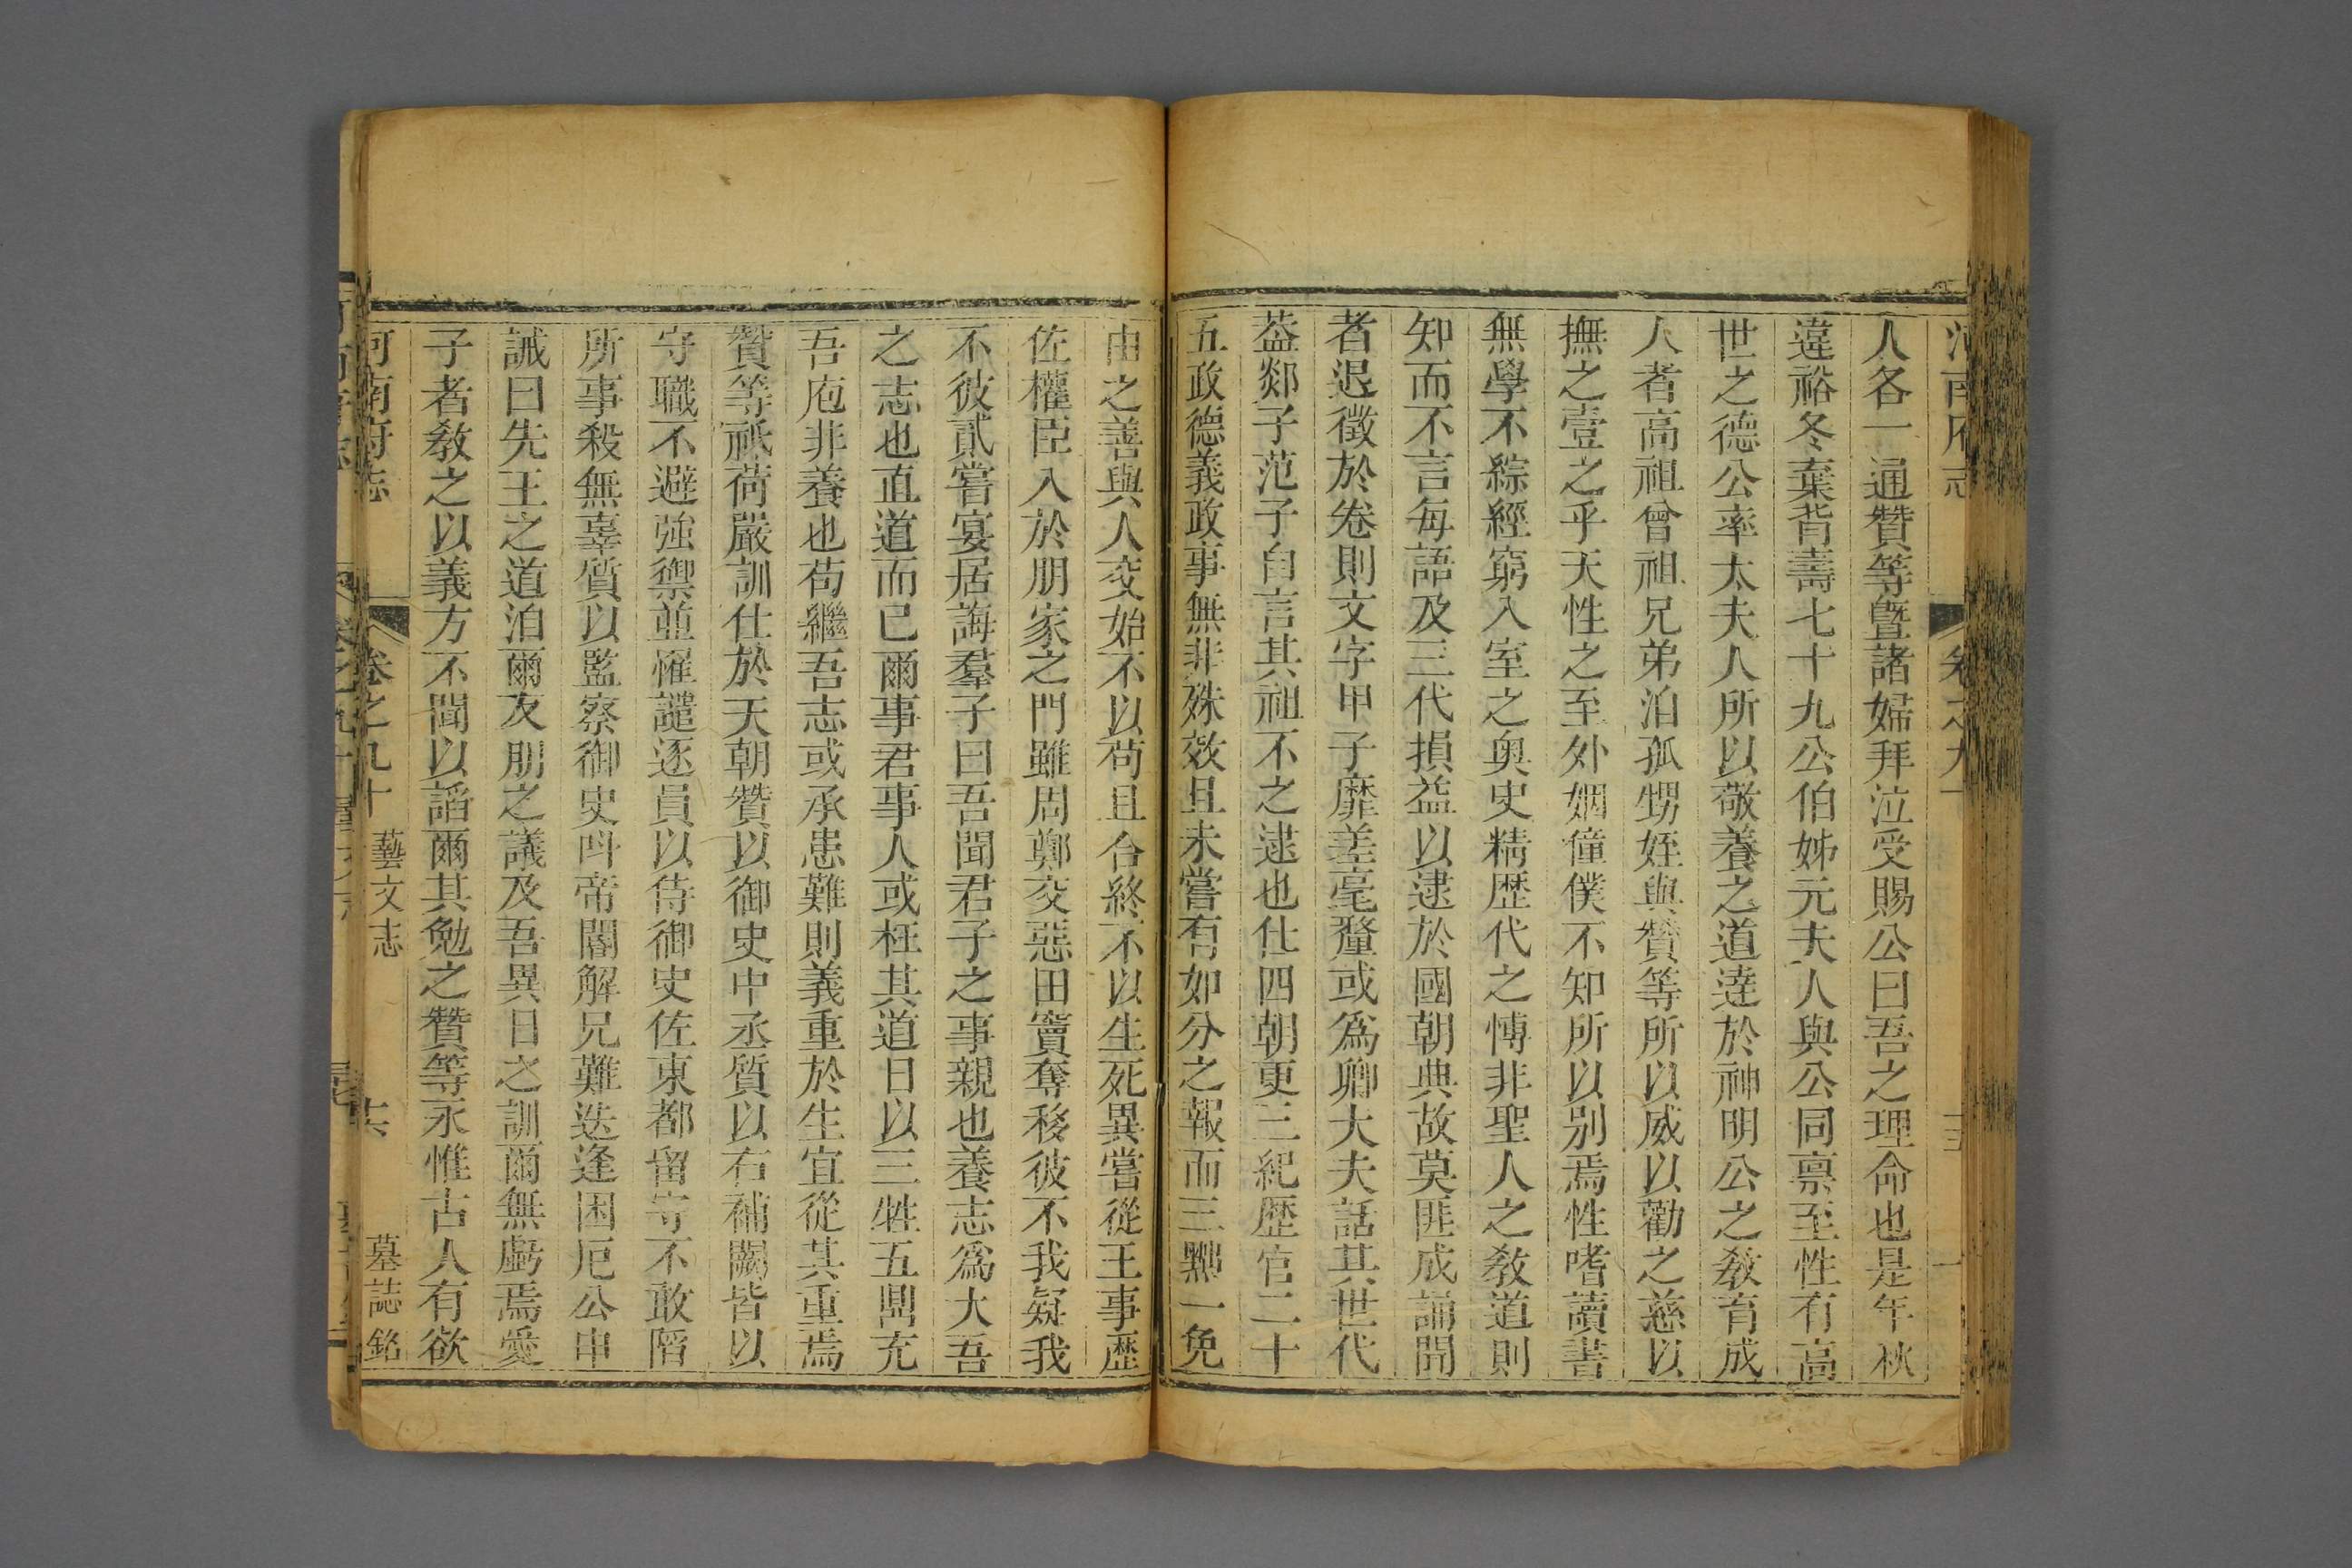 河南府志 卷之九十
人各一通贊等曁諸婦拜泣受賜公曰吾之理命也是年秋
違裕冬棄背壽七十九公伯姊元夫人與公同禀至性有高
世之德公率太夫人所以敬養之道達於神明公之敎育成
人者高祖曾祖兄弟洎孤甥姪與贊等所以威以勸之慈以
撫之壹之乎天性之至外姻僮僕不知所以別焉性嗜讀書
無學不綜經窮入室之奥史精歴代之愽非聖人之敎道則
知而不言每語及三代損益以逮於國朝典故莫匪成誦問
者退徵於卷則文字甲子靡差毫釐或爲卿大夫話其世代
葢郯子范子自言其祖不之逮也仕四朝更三紀歴官二十
五政德義政事無非殊效且未嘗有如分之報而三黜一免
由之善與人交始不以苟且合終不以生死異嘗從王事歴
佐權臣入於朋家之門雖周鄭交惡田竇奪移彼不我疑我
不彼貳嘗宴居誨羣子曰吾聞君子之事親也養志爲大吾
之志也直道而已爾事君事人或枉其道日以三牲五鼎充
吾庖非養也苟繼吾志或承患難則義重於生宜從其重焉
贊等祇荷嚴訓仕於天朝贊以御史中丞質以右補闕皆以
守職不避強禦並罹譴逐員以侍御史佐東都留守不敢陷
所事殺無辜質以監察御史呌帝閽解兄難迭逢困厄公申
誡曰先王之道洎爾友朋之議及吾異日之訓爾無虧焉愛
子者敎之以義方不聞以謟爾其勉之贊等永惟古人有欲
河南府志 卷之九十 藝文志 墓誌銘